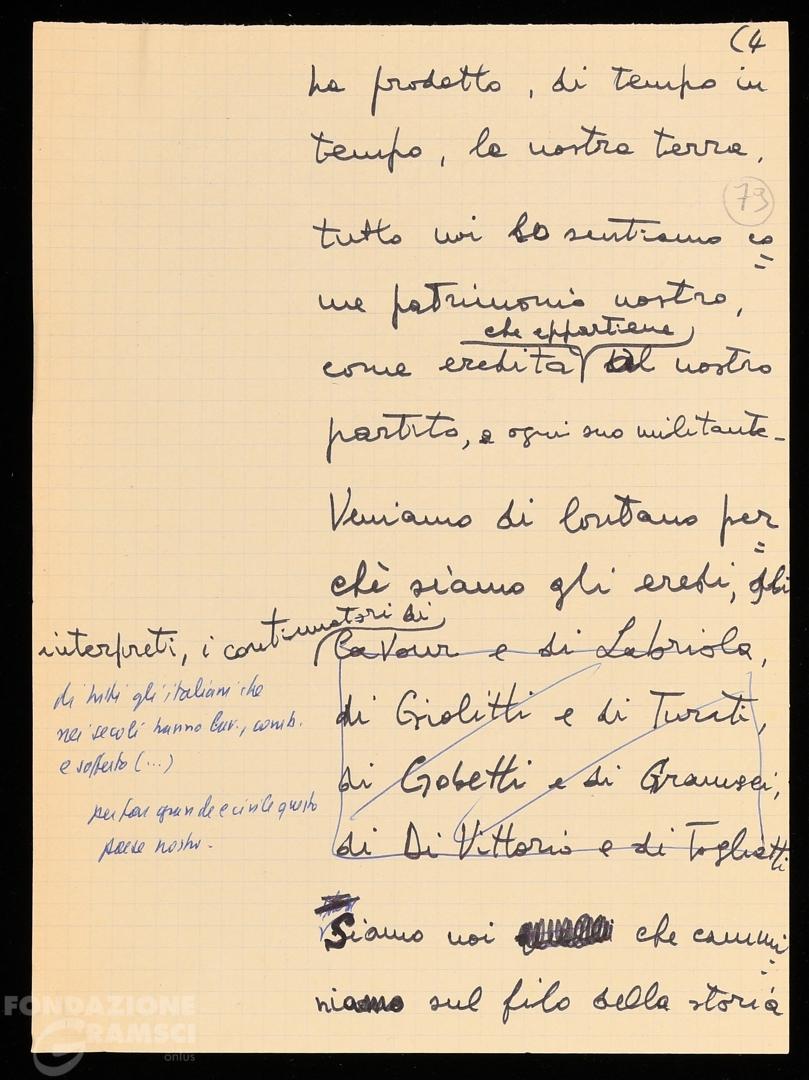 (4
ha prodotto, di tempo in
tempo, la nostra terra,
79
tutto noi lo sentiamo co=
me patrimonio nostro,
che appartiene
come eredità al nostro
partito, a ogni suo militante-
Veniamo di lontano per=
chè siamo gli eredi, gli
interpreti, i continuatori di
Cavour e di Labriola,
di tutti gli italiani che
di Giolitti e di Turati,
nei secoli hanno lav., comb.
e sofferto (...)
di Gobetti e di Gramsci,
per far grande e civile questo
paese nostro.
di Di Vittorio e di Togliatti
Siamo noi che cammi=
niamo sul filo della storia
FONDAZIONE
GRAMSCI
onlus